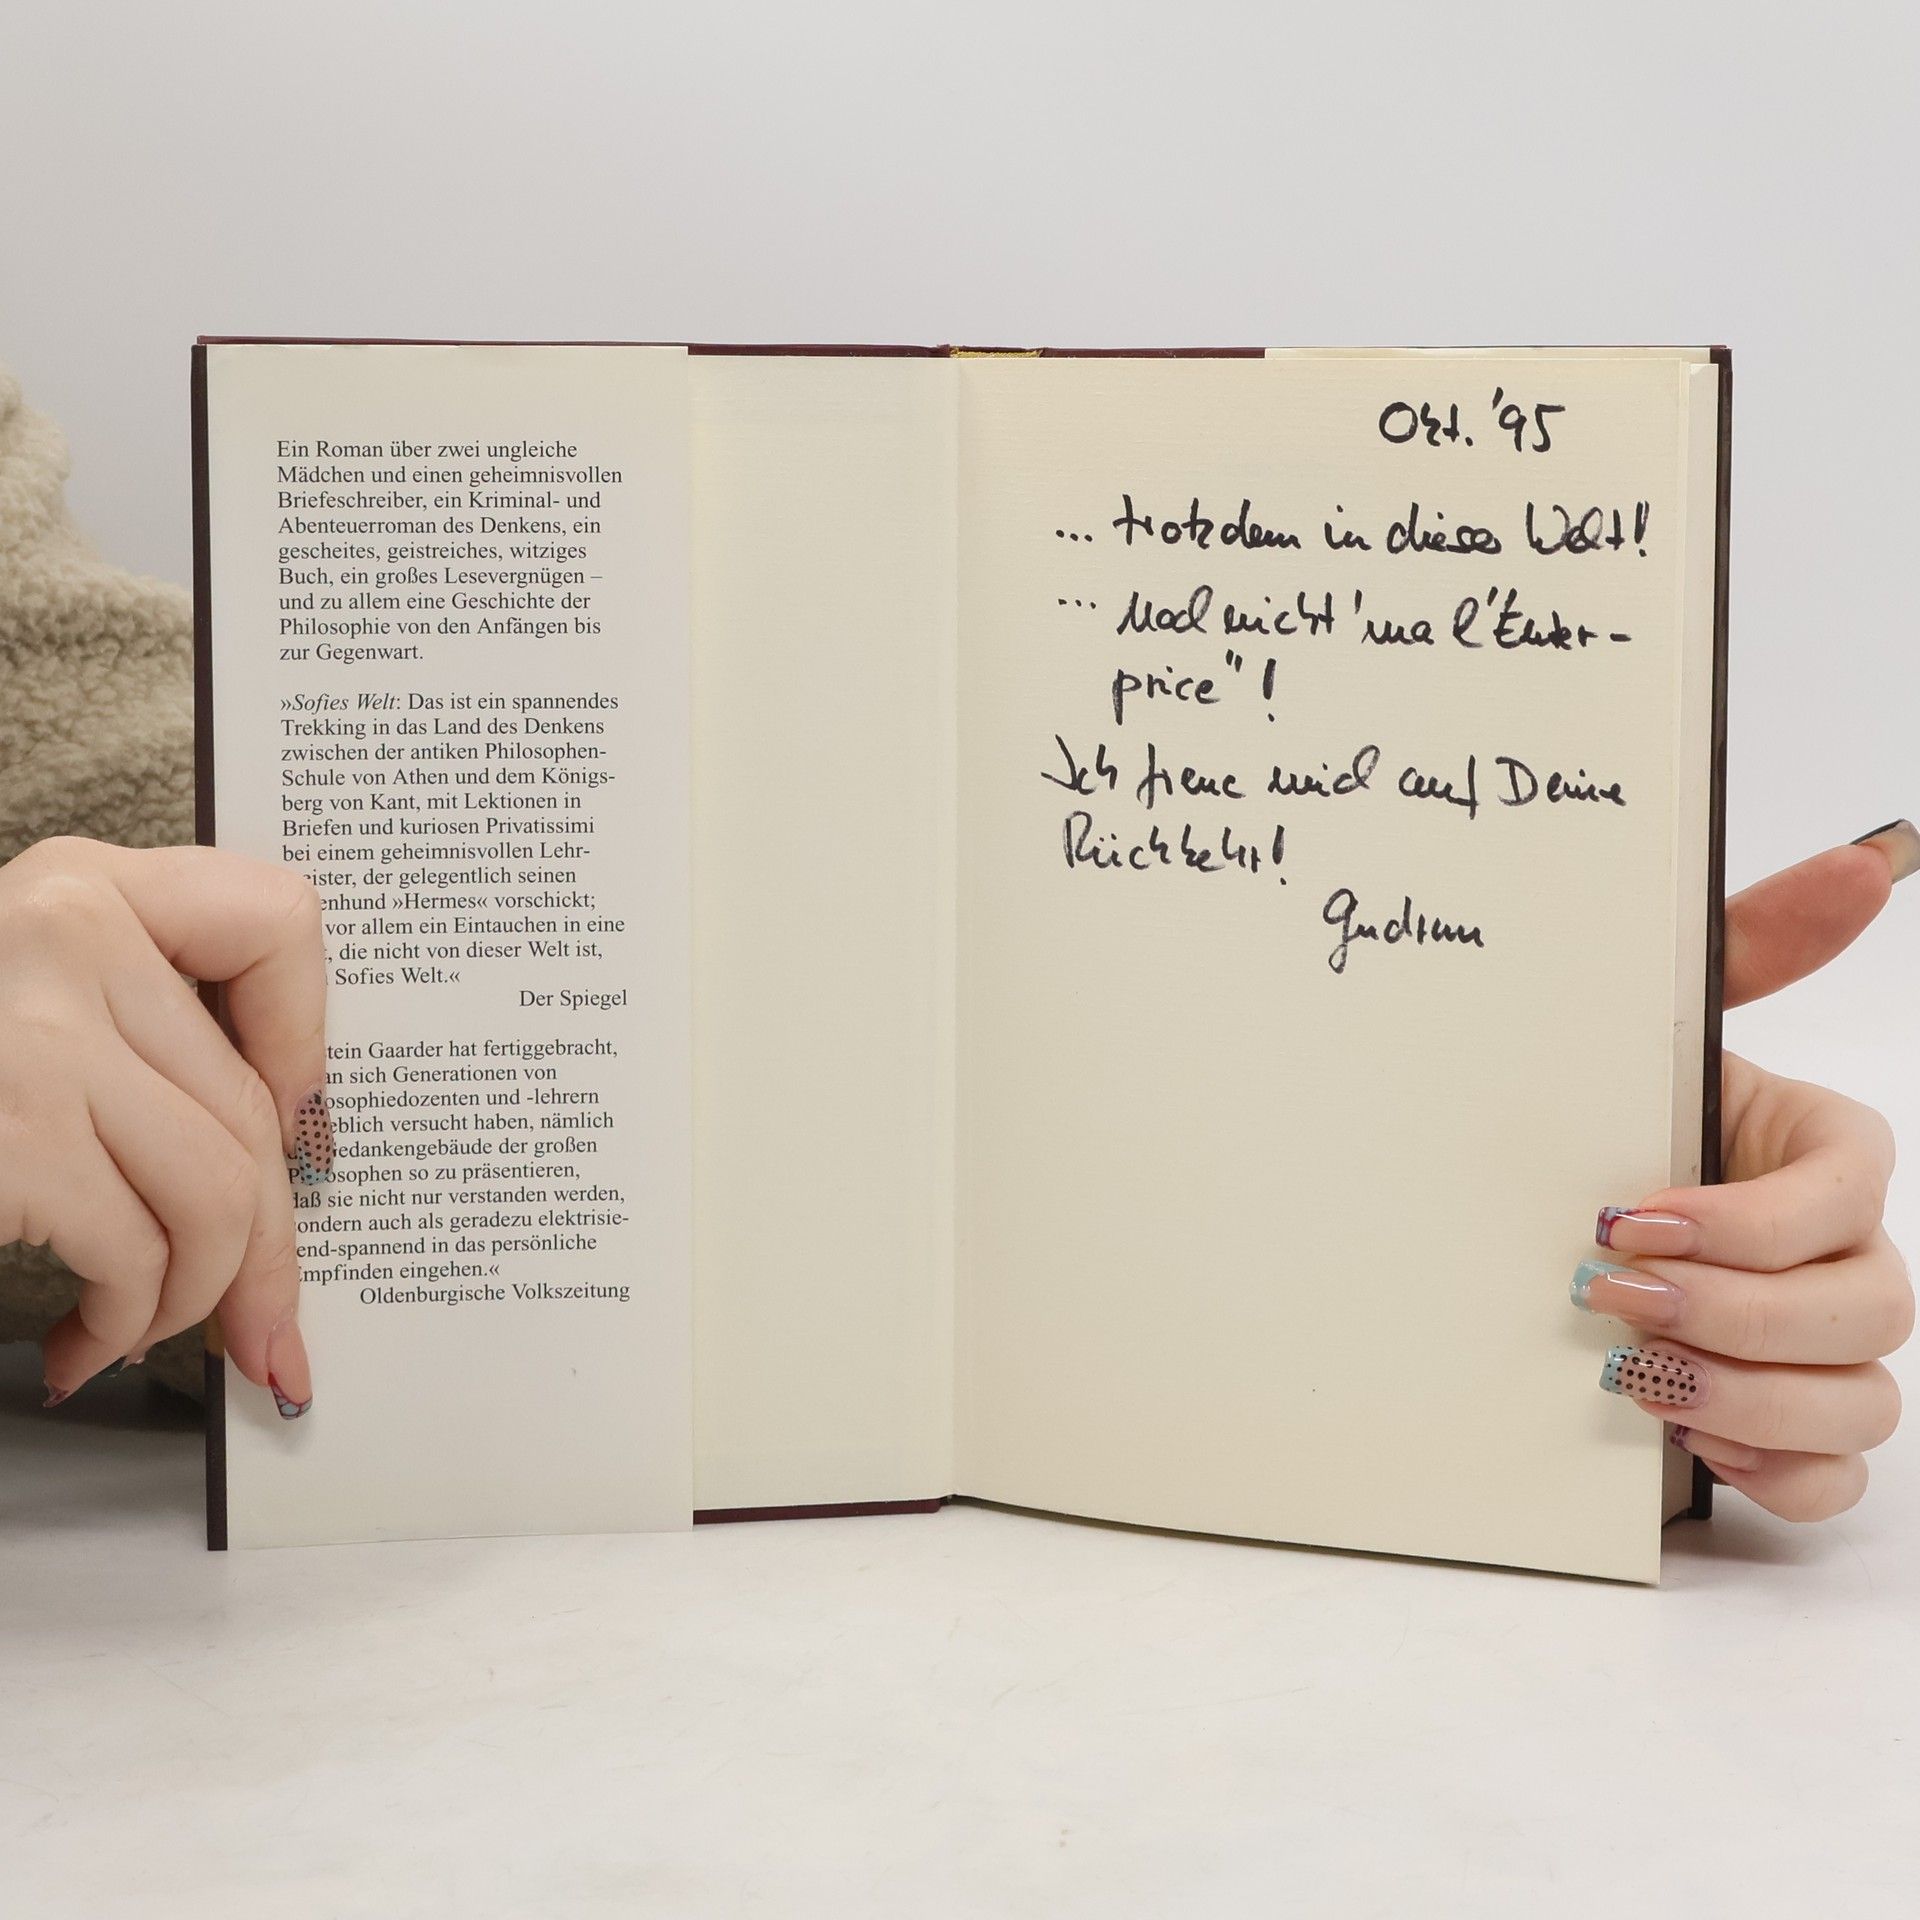 Ein Roman über zwei ungleiche
Mädchen und einen geheimnisvollen
Briefeschreiber, ein Kriminal- und
Abenteuerroman des Denkens, ein
gescheites, geistreiches, witziges
Buch, ein großes Lesevergnügen –
und zu allem eine Geschichte der
Philosophie von den Anfängen bis
zur Gegenwart.
»Sofies Welt: Das ist ein spannendes
Trekking in das Land des Denkens
zwischen der antiken Philosophen-
Schule von Athen und dem Königs-
berg von Kant, mit Lektionen in
Briefen und kuriosen Privatissimi
bei einem geheimnisvollen Lehr-
eister, der gelegentlich seinen
enhund »Hermes« vorschickt;
vor allem ein Eintauchen in eine
, die nicht von dieser Welt ist,
Sofies Welt.«
Der Spiegel
tein Gaarder hat fertiggebracht,
an sich Generationen von
osophiedozenten und -lehrern
eblich versucht haben, nämlich
edankengebäude der großen
osophen so zu präsentieren,
daß sie nicht nur verstanden werden,
ondern auch als geradezu elektrisie-
end-spannend in das persönliche
Empfinden eingehen.«
Oldenburgische Volkszeitung
Okt. '95
... trotzdem in dieser Welt!
... nicht 'ma
price" !
Ich freue mich auf Deine
Rückkehr!
Gudrun